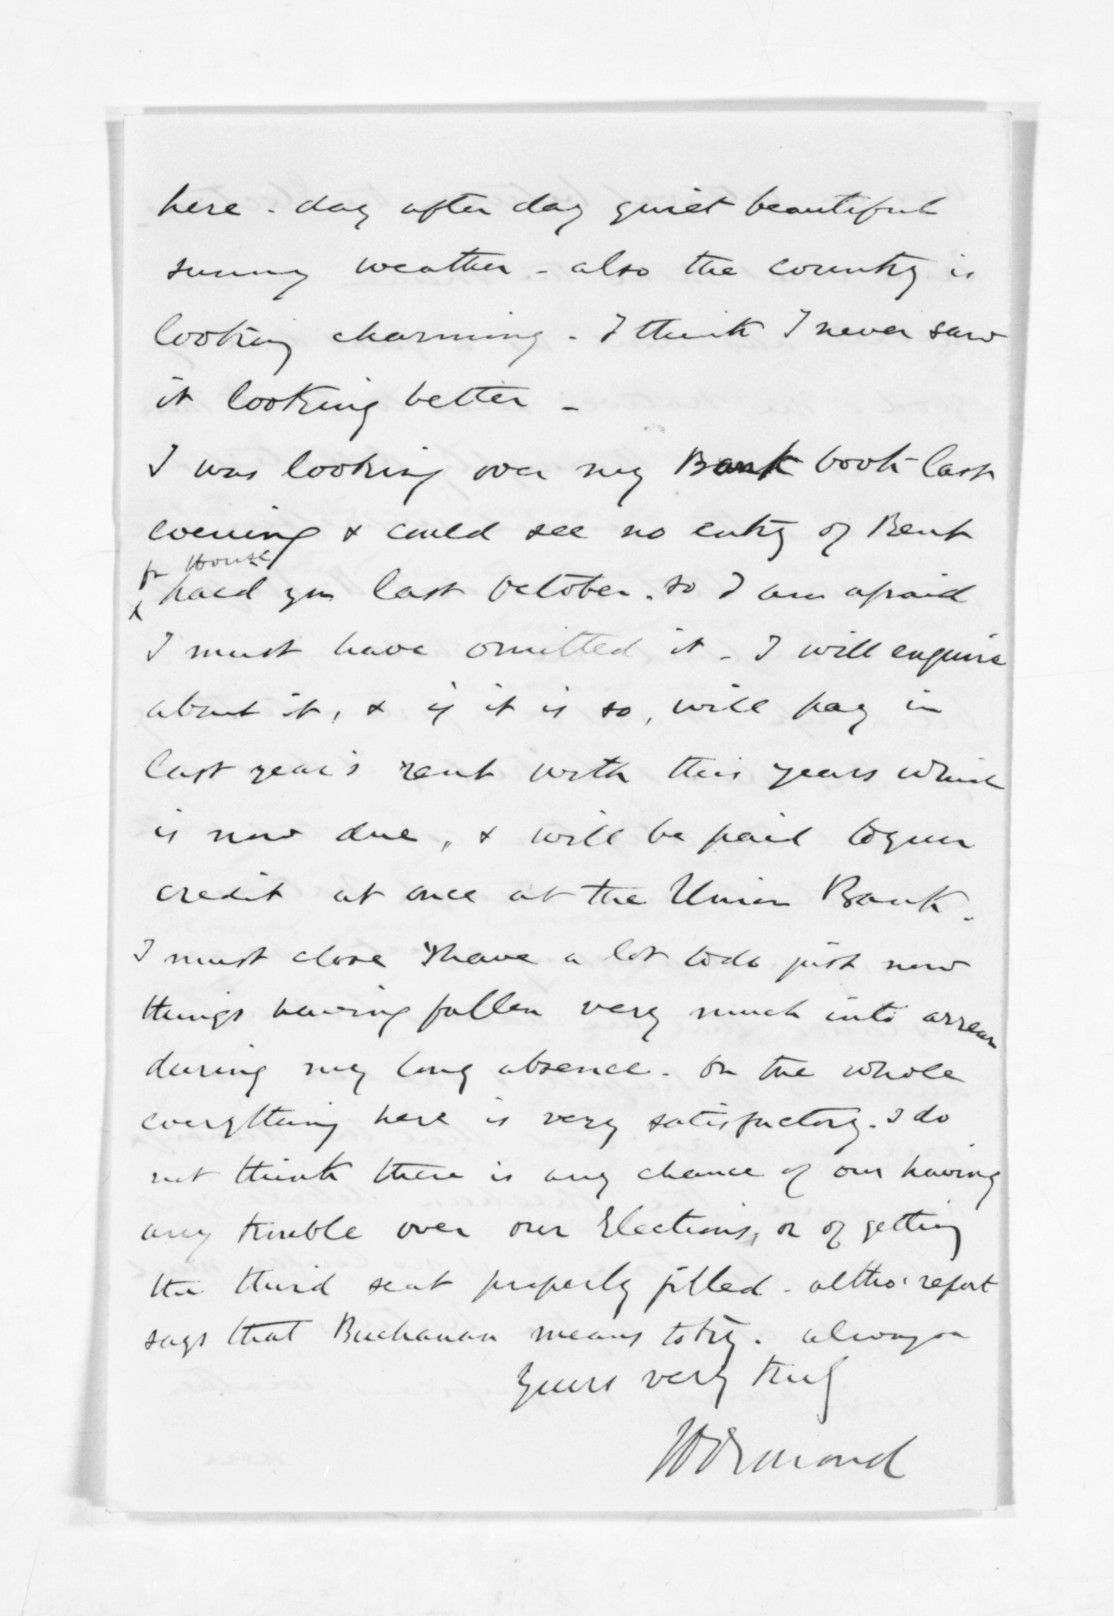 here - day after day quiet beautiful
sunny weather - also the country is
looking charming - I think I never saw
it looking better -
I was looking over my Bank book last
evening & could see no entry of Rent
for House
x paid you last October. so I am afraid
I must have omitted it - I will enquire
about it, & if it is so, will pay in
last year's rent with this years which
is now due, & will be paid to your
credit at once at the Union Bank.
I must close I have a lot to do just now
things having fallen very much into arrear
during my long absence. On the whole
everything here is very satisfactory. I do
not think there is any chance of our having
any trouble over our Elections, or of getting
the third seat properly filled - altho' report
says that Buchanan means to try. always
Yours very truly
JD Ormond